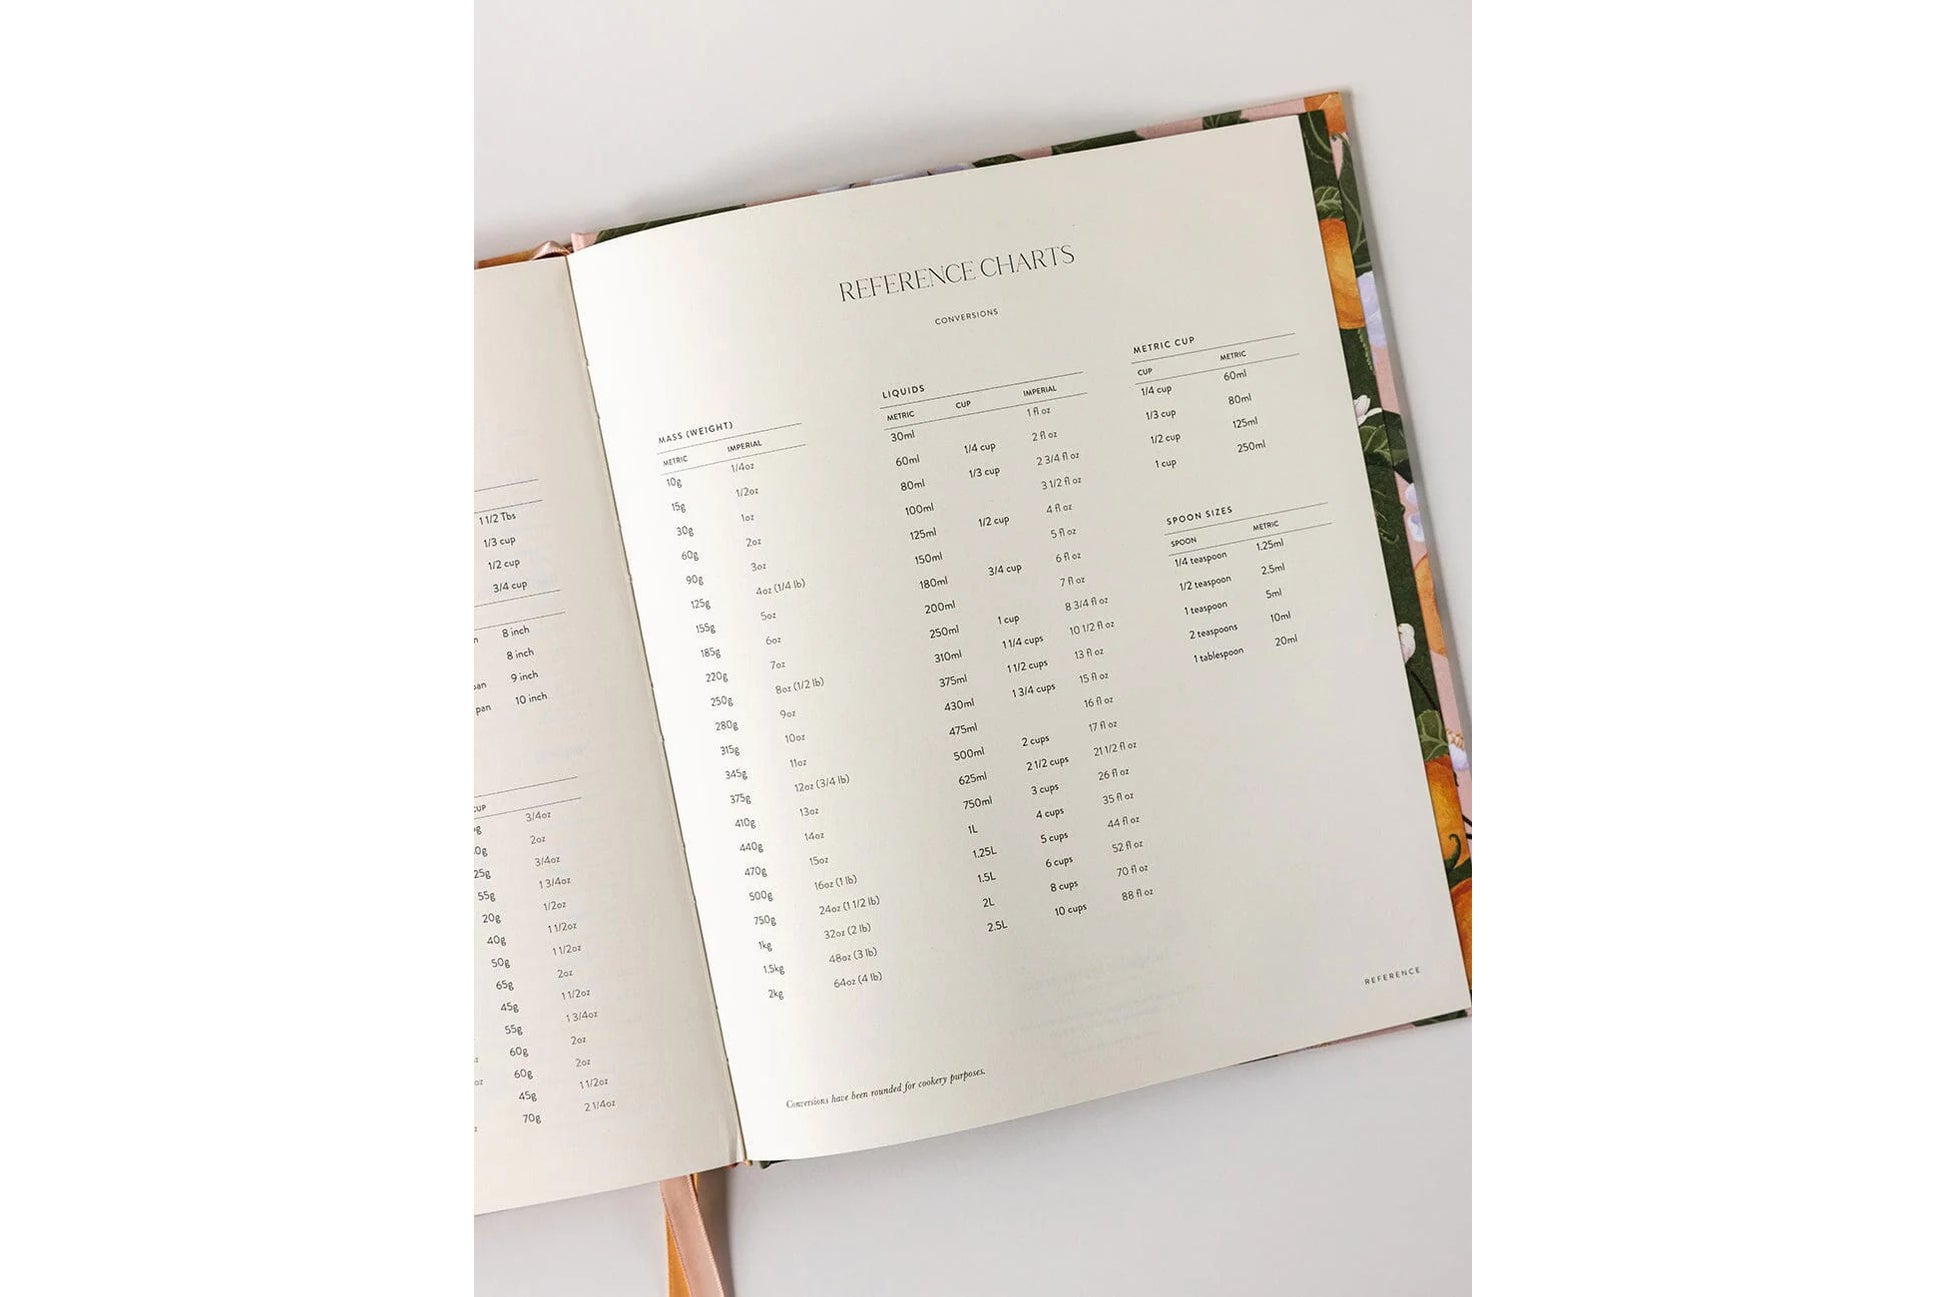 1 1/2 Tbs
1/3 cup
1/2 cup
3/4 cup
8 inch
8 inch
9 inch
pan 10 inch
3/4oz
2oz
3/4oz
55g 1 3/4oz
20g 1/2oz
40g 1 1/2oz
50g 1 1/2oz
65g 2oz
45g 1 1/2oz
55g 1 3/4oz
60g 2oz
60g 2oz
45g 1 1/2oz
70g 2 1/4oz
REFERENCE CHARTS
CONVERSIONS
MASS (WEIGHT)
METRIC IMPERIAL
10g 1/4oz
15g 1/2oz
30g 1oz
60g 2oz
90g 3oz
125g 4oz (1/4 lb)
155g 5oz
185g 6oz
220g 7oz
250g 8oz (1/2 lb)
280g 9oz
315g 10oz
345g 11oz
375g 12oz (3/4 lb)
410g 13oz
440g 14oz
470g 15oz
500g 16oz (1 lb)
750g 24oz (1 1/2 lb)
1kg 32oz (2 lb)
1.5kg 48oz (3 lb)
2kg 64oz (4 lb)
LIQUIDS
METRIC CUP IMPERIAL
30ml 1 fl oz
60ml 1/4 cup 2 fl oz
80ml 1/3 cup 2 3/4 fl oz
100ml 3 1/2 fl oz
125ml 1/2 cup 4 fl oz
150ml 5 fl oz
180ml 3/4 cup 6 fl oz
200ml 7 fl oz
250ml 1 cup 8 3/4 fl oz
310ml 1 1/4 cups 10 1/2 fl oz
375ml 1 1/2 cups 13 fl oz
430ml 1 3/4 cups 15 fl oz
475ml 16 fl oz
500ml 2 cups 17 fl oz
625ml 2 1/2 cups 21 1/2 fl oz
750ml 3 cups 26 fl oz
1L 4 cups 35 fl oz
1.25L 5 cups 44 fl oz
1.5L 6 cups 52 fl oz
2L 8 cups 70 fl oz
2.5L 10 cups 88 fl oz
METRIC CUP
CUP METRIC
1/4 cup 60ml
1/3 cup 80ml
1/2 cup 125ml
1 cup 250ml
SPOON SIZES
SPOON METRIC
1/4 teaspoon 1.25ml
1/2 teaspoon 2.5ml
1 teaspoon 5ml
2 teaspoons 10ml
1 tablespoon 20ml
Conversions have been rounded for cookery purposes.
REFERENCE